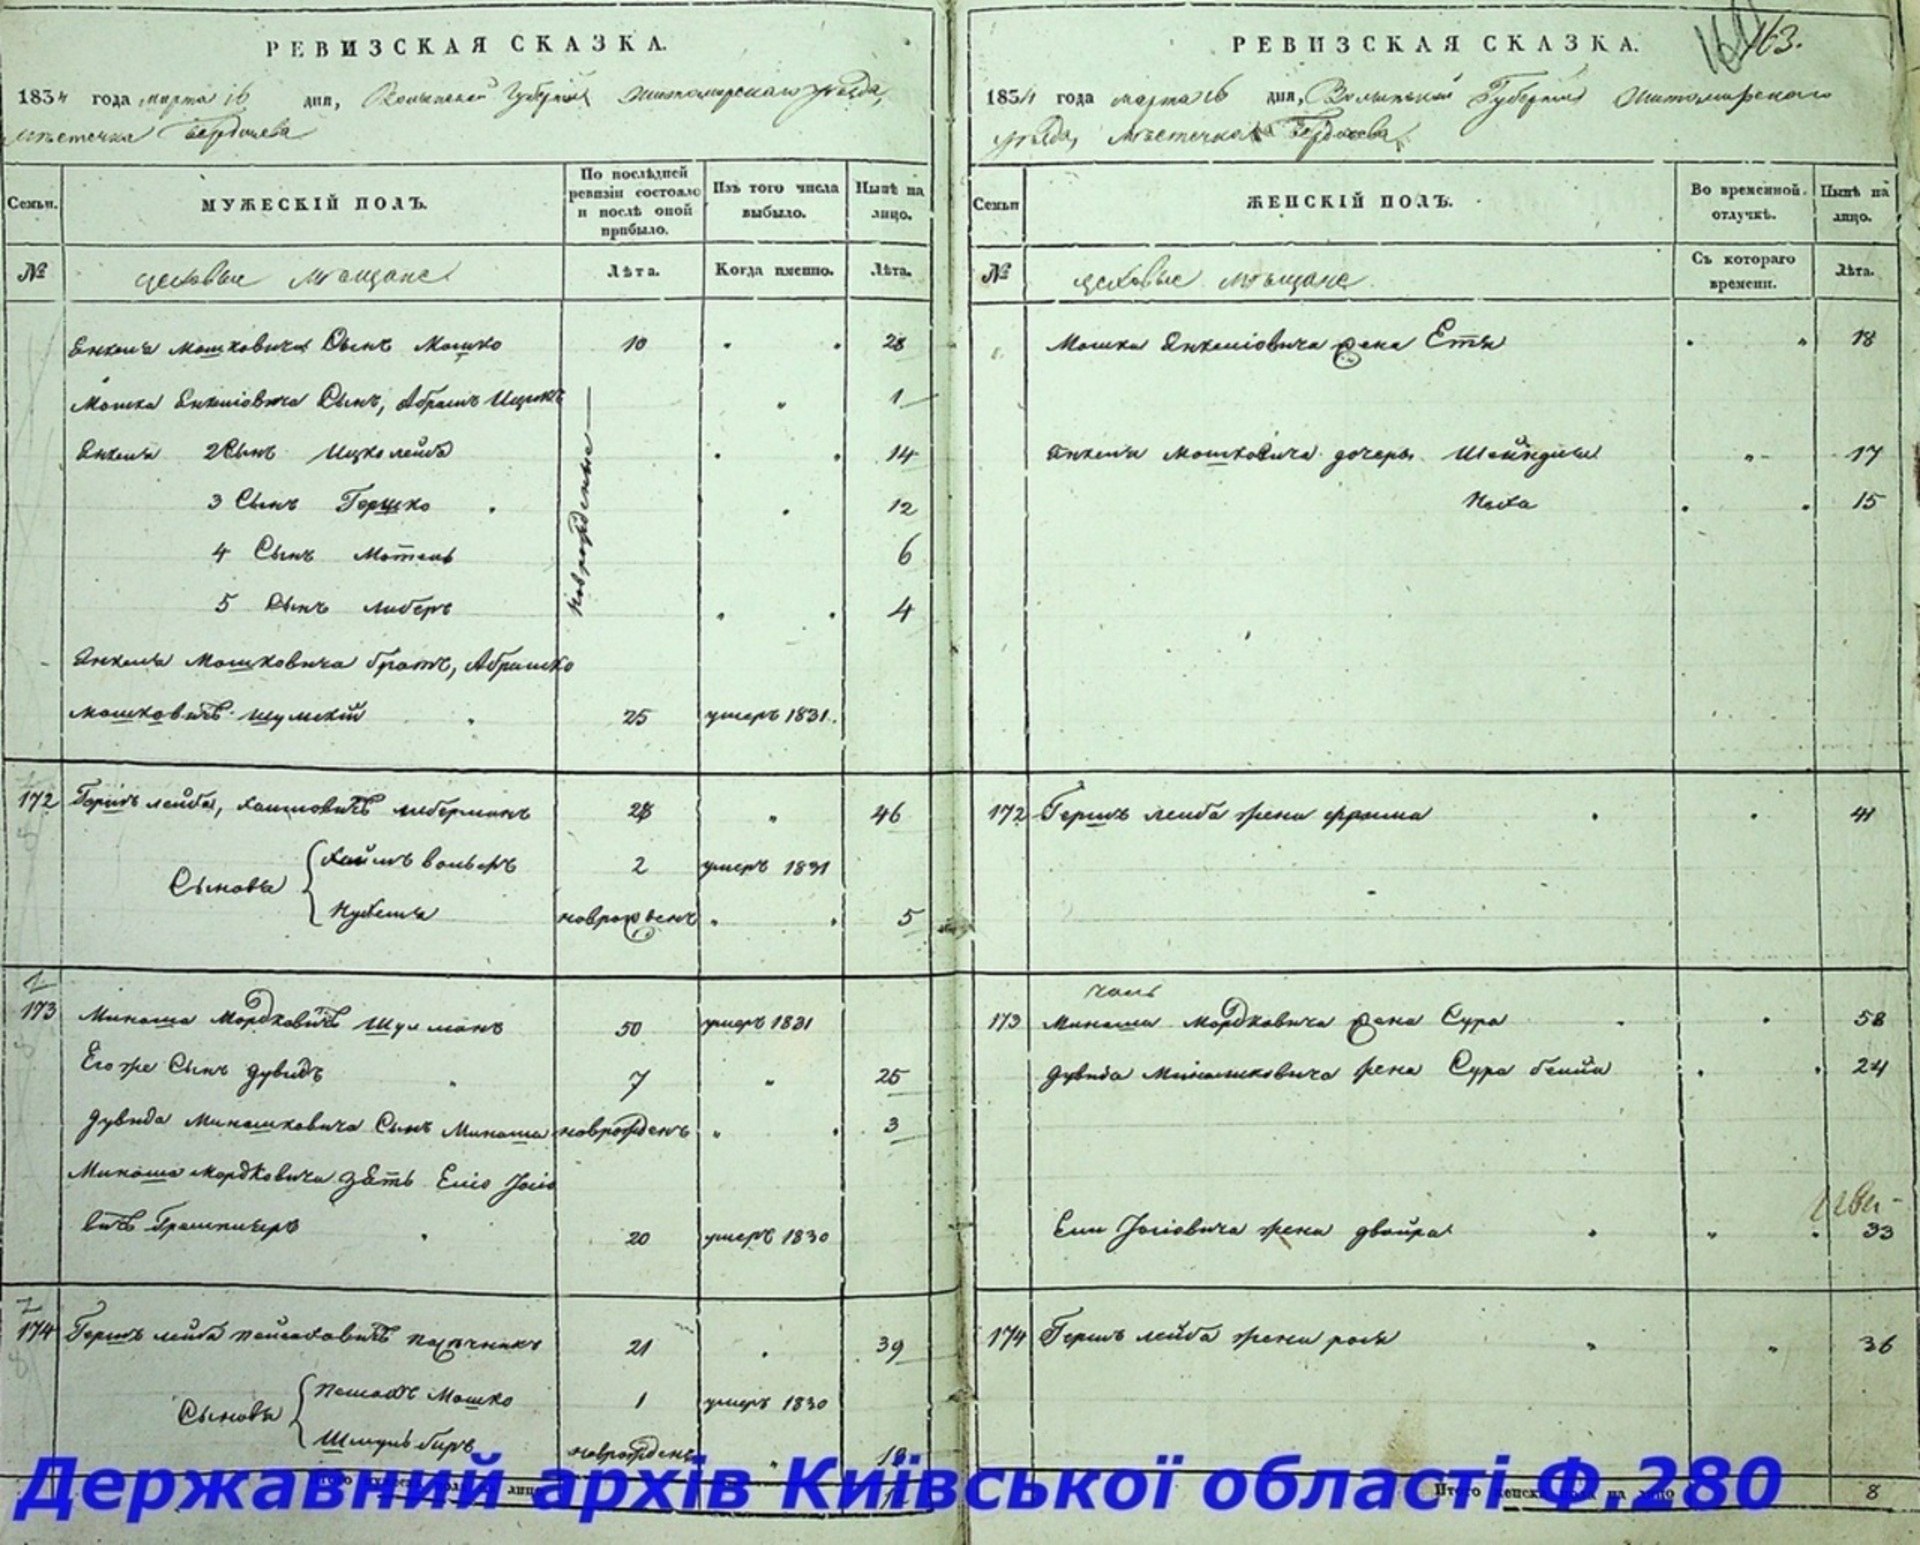 РЕВИЗСКАЯ СКАЗКА.
1834 года марта 16 дня, Волынской Губернiи Житомирскаго уѣзда,
мѣстечка Бердичева
Семьи.
МУЖЕСКІЙ ПОЛЪ.
По послѣдней ревизіи состояло и послѣ оной прибыло.
Изъ того числа выбыло.
Нынѣ на лицо.
№
цеховые мѣщане
Лѣта.
Когда именно.
Лѣта.
Янкеля Мошковича Сынъ Мошко 10 28
Мошка Янкеліовича Сынъ, Абрамъ Ицикъ 1
Янкеля 2 Сынъ Ицко лейба 14
новрожденные
3 Сынъ Гершко 12
4 Сынъ Мотель 6
5 Сынъ Либеръ 4
Янкеля Мошковича братъ, Абрамко
Мошковичъ Шумскій 25 умеръ 1831.
172 Гершъ лейба, Хаимовичъ Либерманъ 28 46
Сыновья
Хаимъ Вольфъ 2 умеръ 1831
новрожденъ 5
173 Минаша Мордковичъ Шулманъ 50 умеръ 1831
Его же Сынъ Дувидъ 7 25
Дувида Минашковича Сынъ Минаша новрожденъ 3
Минаша Мордковича зять Еліо Іосіо
вичъ 20 умеръ 1830
174 Гершъ лейба Пейсаховичъ 21 39
Сыновья
Пейсахъ Мошко 1 умеръ 1830
Шмуль беръ новрожденъ 18
163.
РЕВИЗСКАЯ СКАЗКА.
1834 года марта 16 дня, Волынской Губерніи Житомирскаго
уѣзда, мѣстечка Бердичева
Семьи
ЖЕНСКІЙ ПОЛЪ.
Во временной отлучкѣ.
Нынѣ на лицо.
№
цеховые мѣщане
Съ котораго времени.
Лѣта.
Мошка Янкеліовича жена Етя 18
Янкеля Мошковича дочери Шейндля 17
Хая 15
172 Гершъ лейба жена Фрима 41
173 Минаши Мордковича жена Сура 58
Дувида Минашковича жена Сура бейла 24
Ели Іосіовича жена Двойра 33
174 Гершъ лейба жена рося 36
Итого женска пола на лицо 8
Державний архів Київської області Ф.280